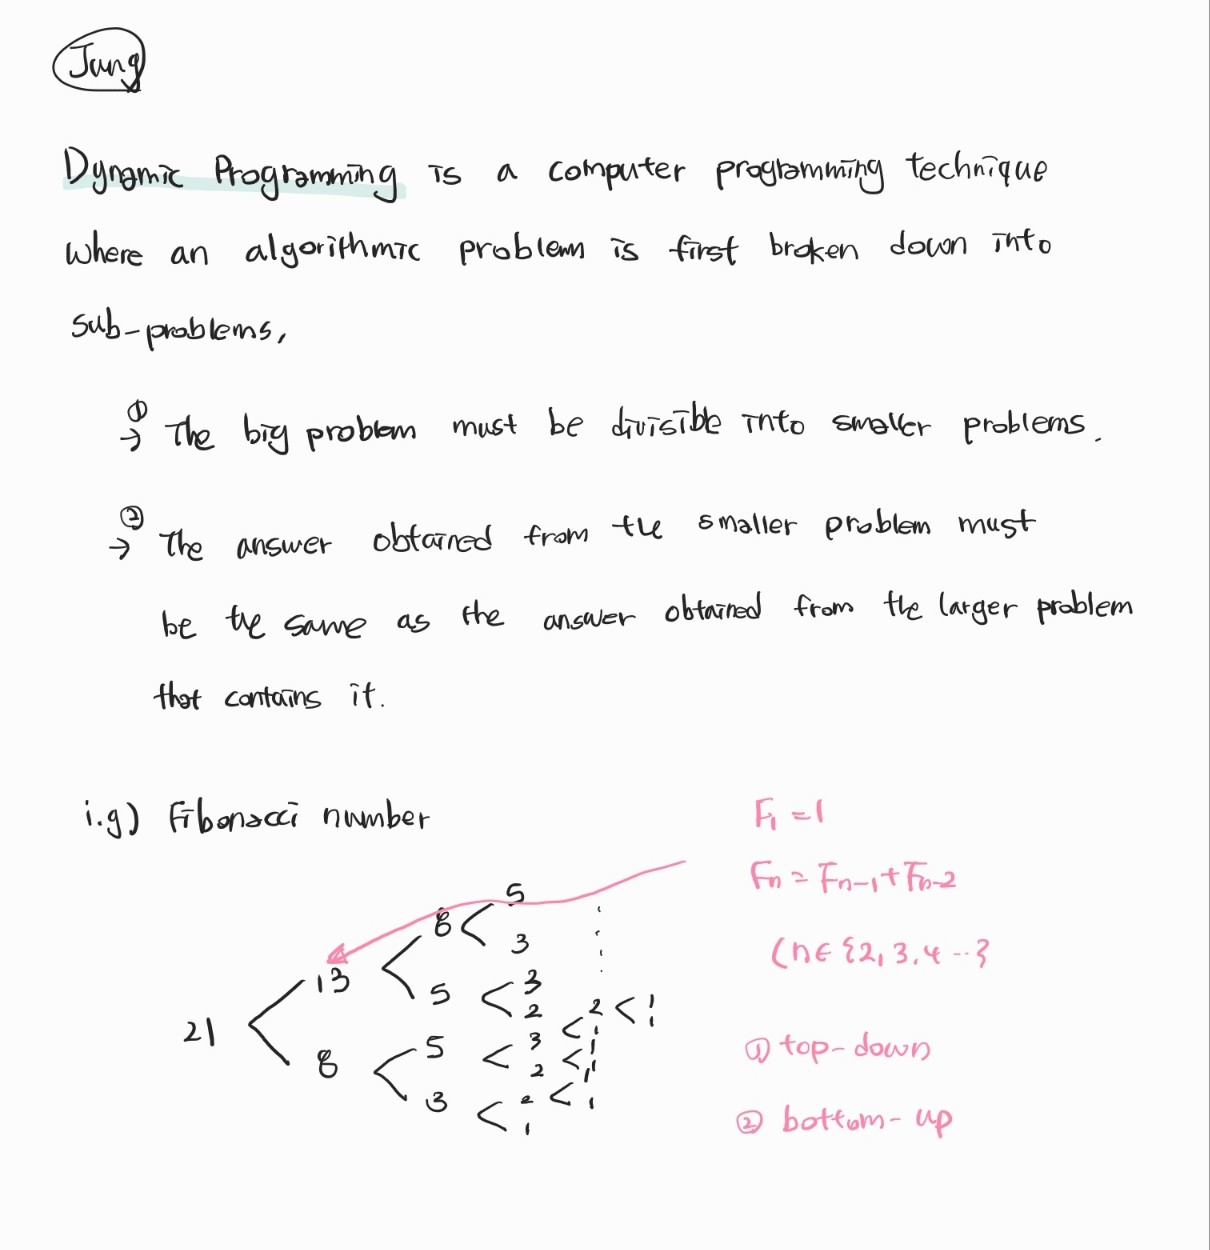 Jung
Dynamic Programming is a computer programming technique
where an algorithmic problem is first broken down into
sub-problems,
①
→ The big problem must be divisible into smaller problems.
②
→ The answer obtained from the smaller problem must
be the same as the answer obtained from the larger problem
that contains it.
i.g) Fibonacci number
F₁ = 1
Fn = Fn-1 + Fn-2
(n∈{2, 3, 4 ...}
① top-down
② bottom-up
21
13
8
8
5
5
3
5
3
3
2
3
2
2
1
2
1
1
1
1
1
1
1